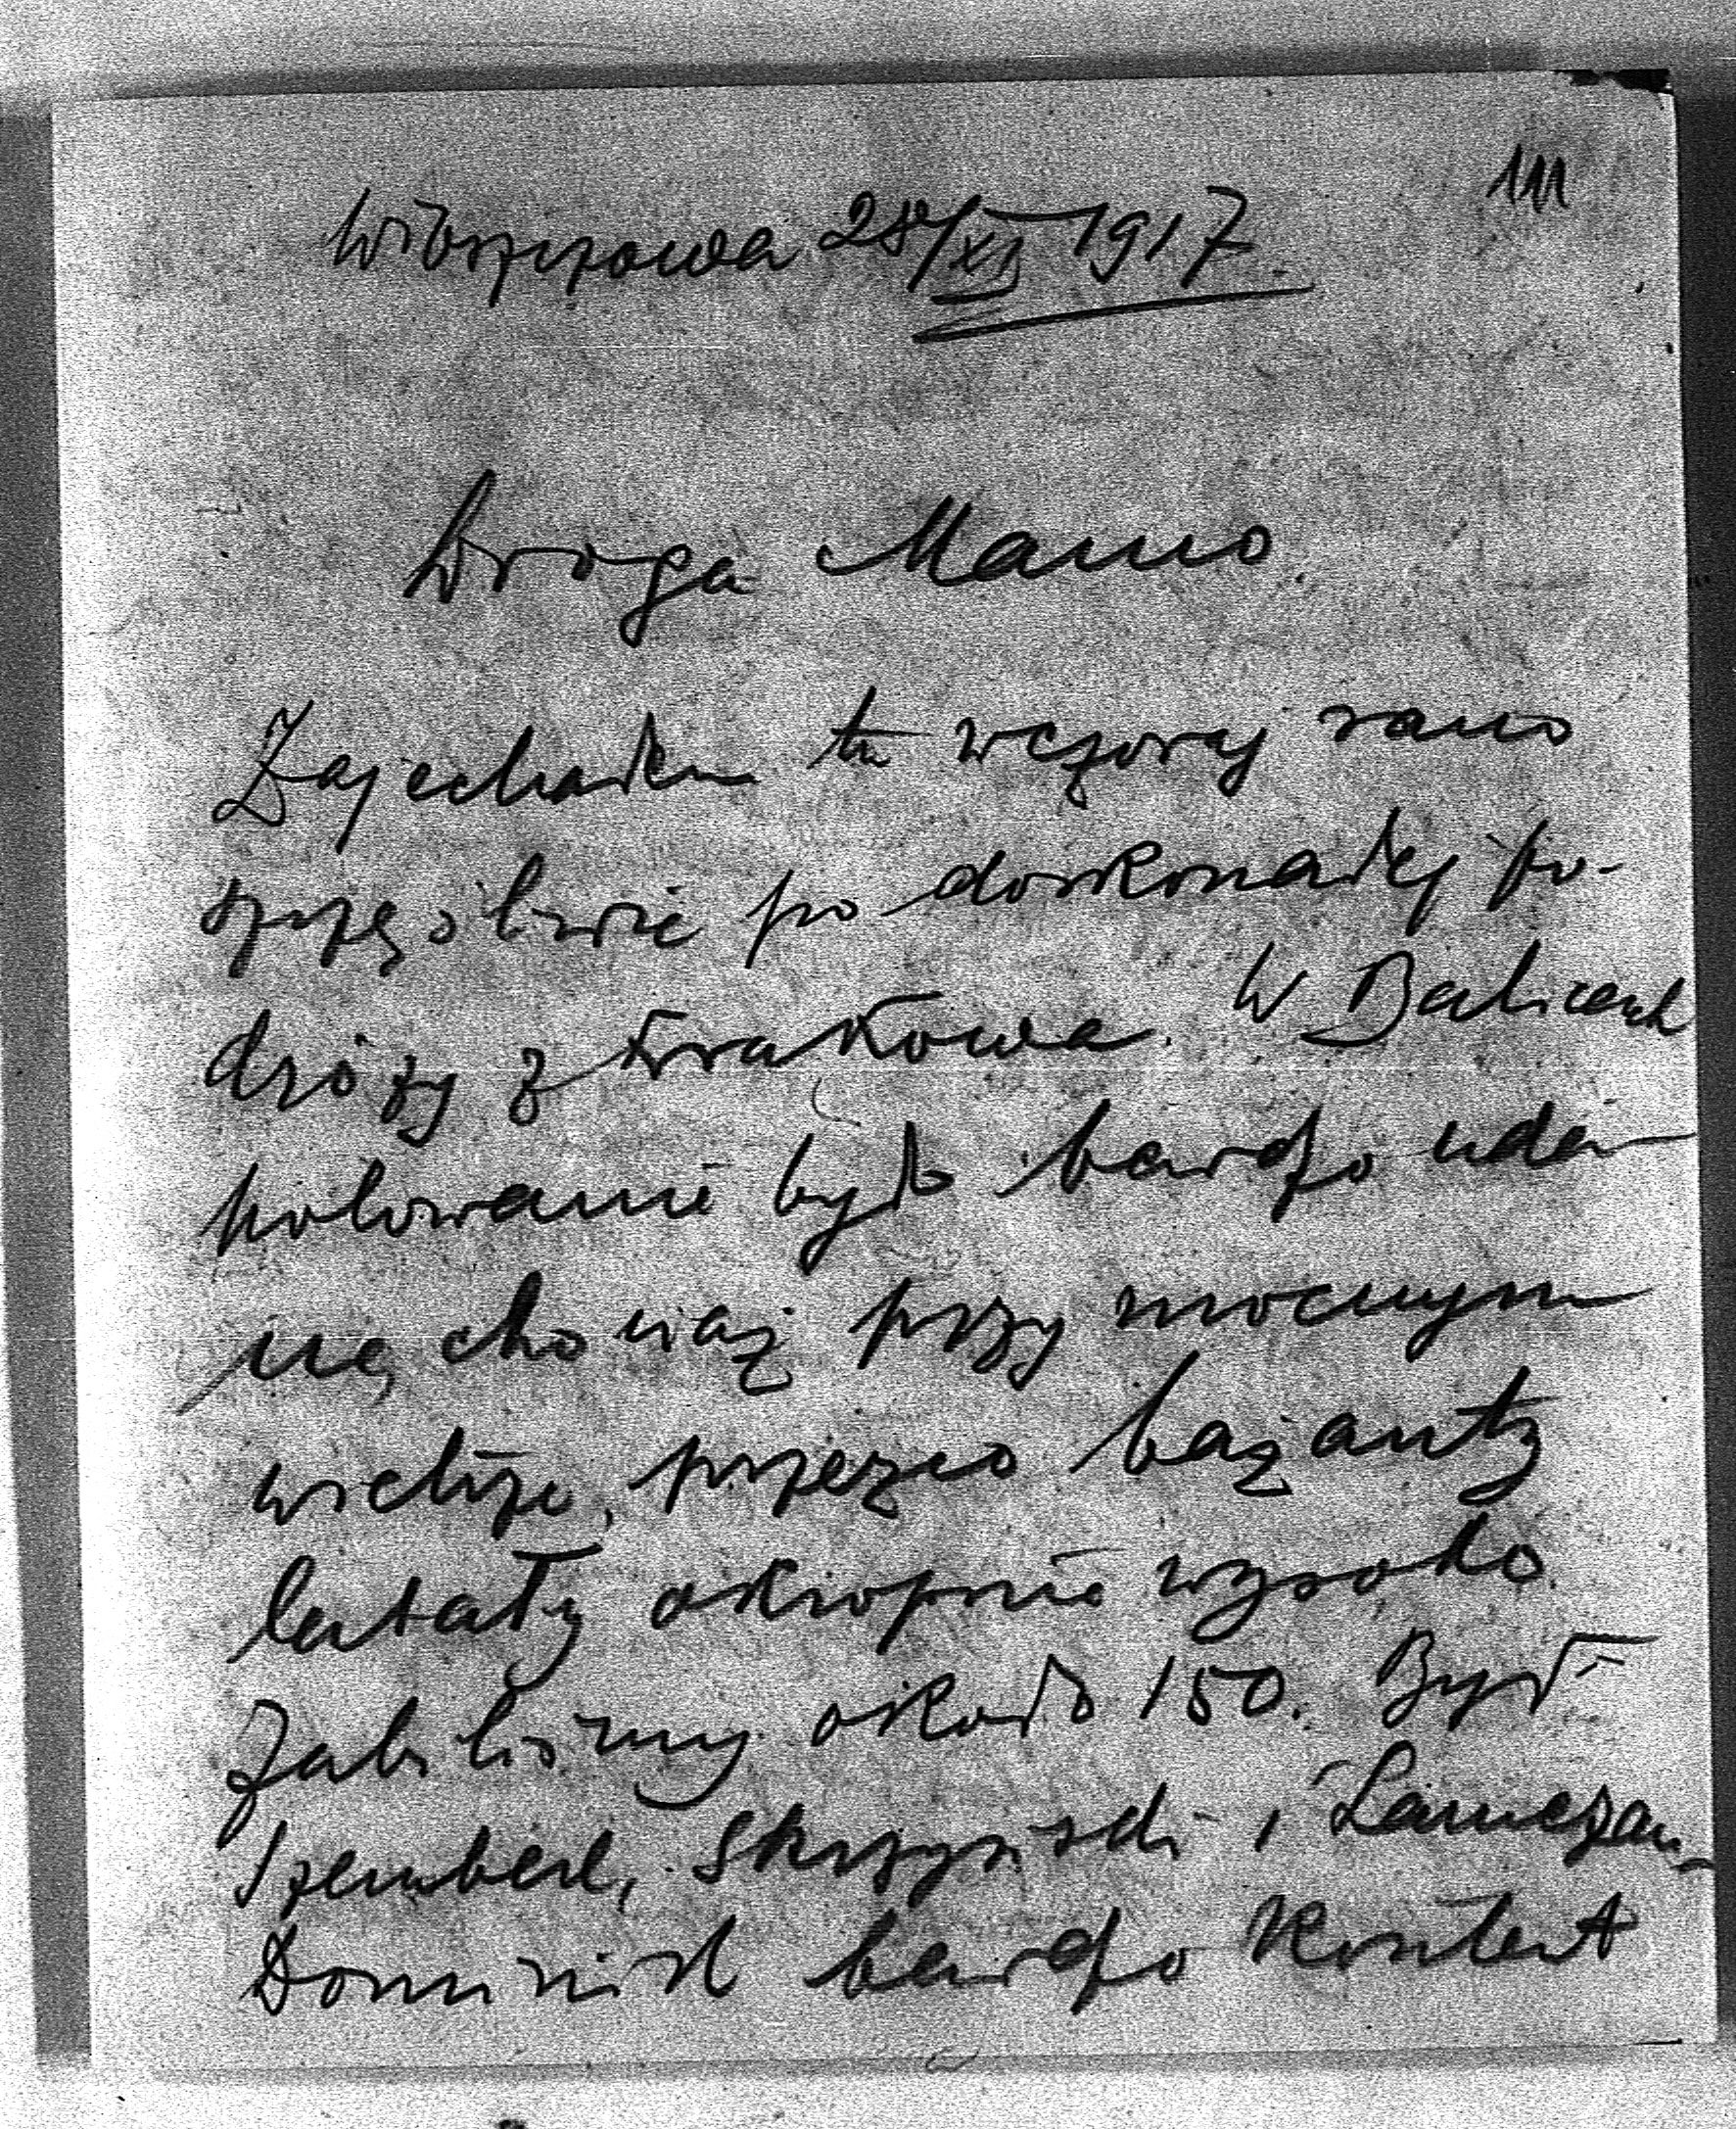 111
Włoszczowa 28/XI 1917.
Droga Mamo.
Zajechałem tu wczoraj rano
szczęśliwie po doskonałej po-
dróży z Krakowa. W Balicach
polowanie było bardzo uda-
ne, chociaż przy mocnym
wietrze, przezco bażanty
latały okropnie wysoko.
Zabiliśmy około 150. Był
Szembek, Skrzyński i
Dominik bardzo kontent